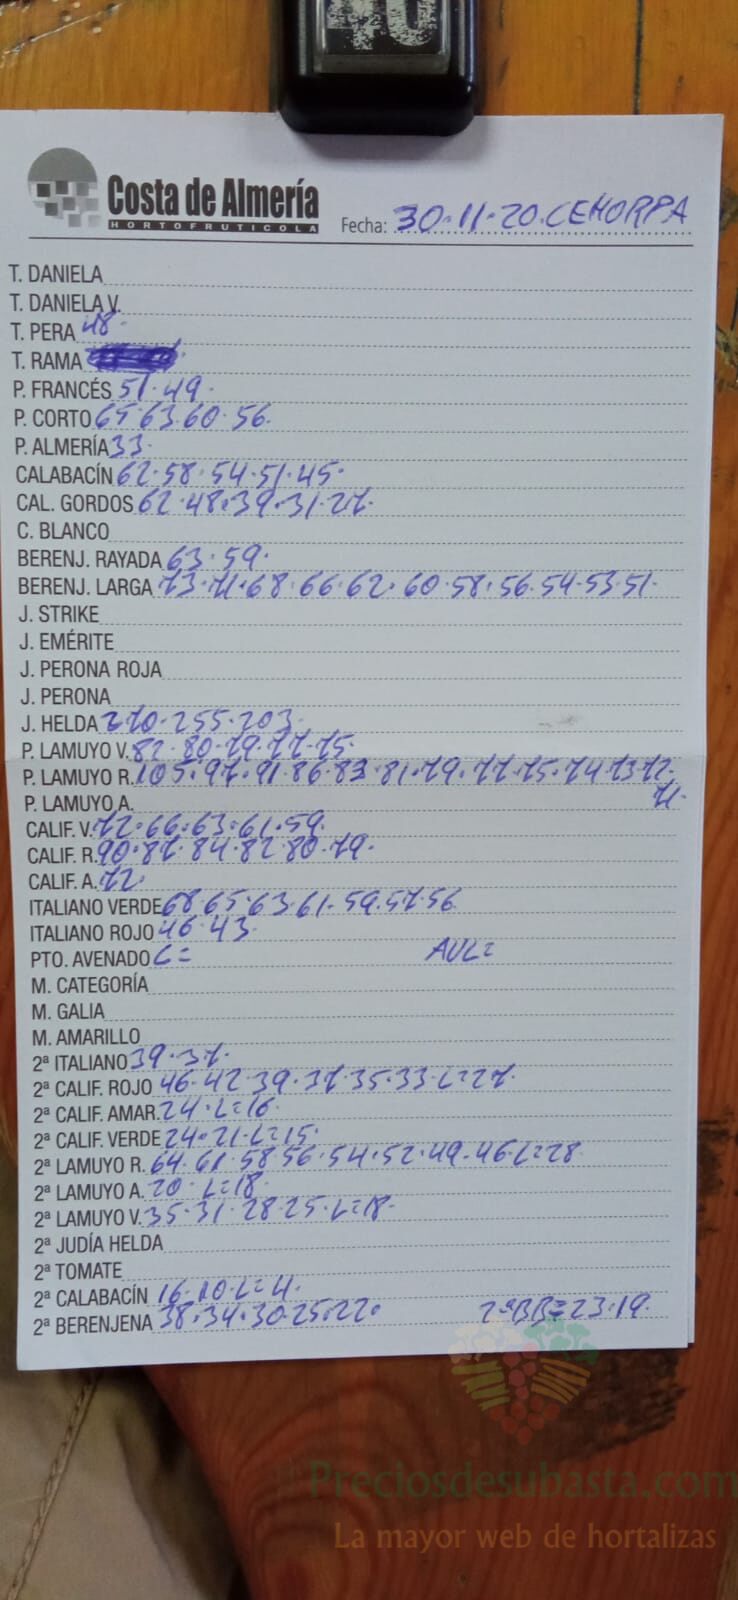 40
Costa de Almería
HORTOFRUTICOLA
Fecha: 30·11·20·CEHORPA
T. DANIELA
T. DANIELA V.
T. PERA 48·
T. RAMA
P. FRANCÉS 51·49·
P. CORTO 65·63·60·56·
P. ALMERÍA 33·
CALABACÍN 62·58·54·51·45·
CAL. GORDOS 62·48·39·31·27·
C. BLANCO
BERENJ. RAYADA 63·59·
BERENJ. LARGA 73·71·68·66·62·60·58·56·54·53·51·
J. STRIKE
J. EMÉRITE
J. PERONA ROJA
J. PERONA
J. HELDA 270·255·203·
P. LAMUYO V. 82·80·79·77·75·
P. LAMUYO R. 105·97·91·86·83·81·79·77·75·74·73·72·
P. LAMUYO A. 71·
CALIF. V. 72·66·63·61·59·
CALIF. R. 90·87·84·82·80·79·
CALIF. A. 72·
ITALIANO VERDE 68·65·63·61·59·57·56
ITALIANO ROJO 46·43·
PTO. AVENADO C= AVL=
M. CATEGORÍA
M. GALIA
M. AMARILLO
2ª ITALIANO 39·37·
2ª CALIF. ROJO 46·42·39·37·35·33·L=27·
2ª CALIF. AMAR. 24·L=16
2ª CALIF. VERDE 24·21·L=15·
2ª LAMUYO R. 64·61·58·56·54·52·49·46·L=28
2ª LAMUYO A. 20·L=18·
2ª LAMUYO V. 35·31·28·25·L=18·
2ª JUDÍA HELDA
2ª TOMATE
2ª CALABACÍN 16·10·L=4·
2ª BERENJENA 38·34·30·25·22· 2ªBB=23·19·
Preciosdesubasta.com
La mayor web de hortalizas